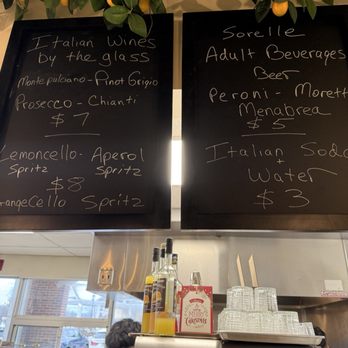 Italian Wines
by the glass
Montepulciano - Pinot Grigio
Prosecco - Chianti
$7
Lemoncello - Aperol
Spritz Spritz
$8
OrangeCello Spritz
Sorelle
Adult Beverages
Beer
Peroni - Moretti
Menabrea
$5
Italian Soda
+
Water
$3
Christmas